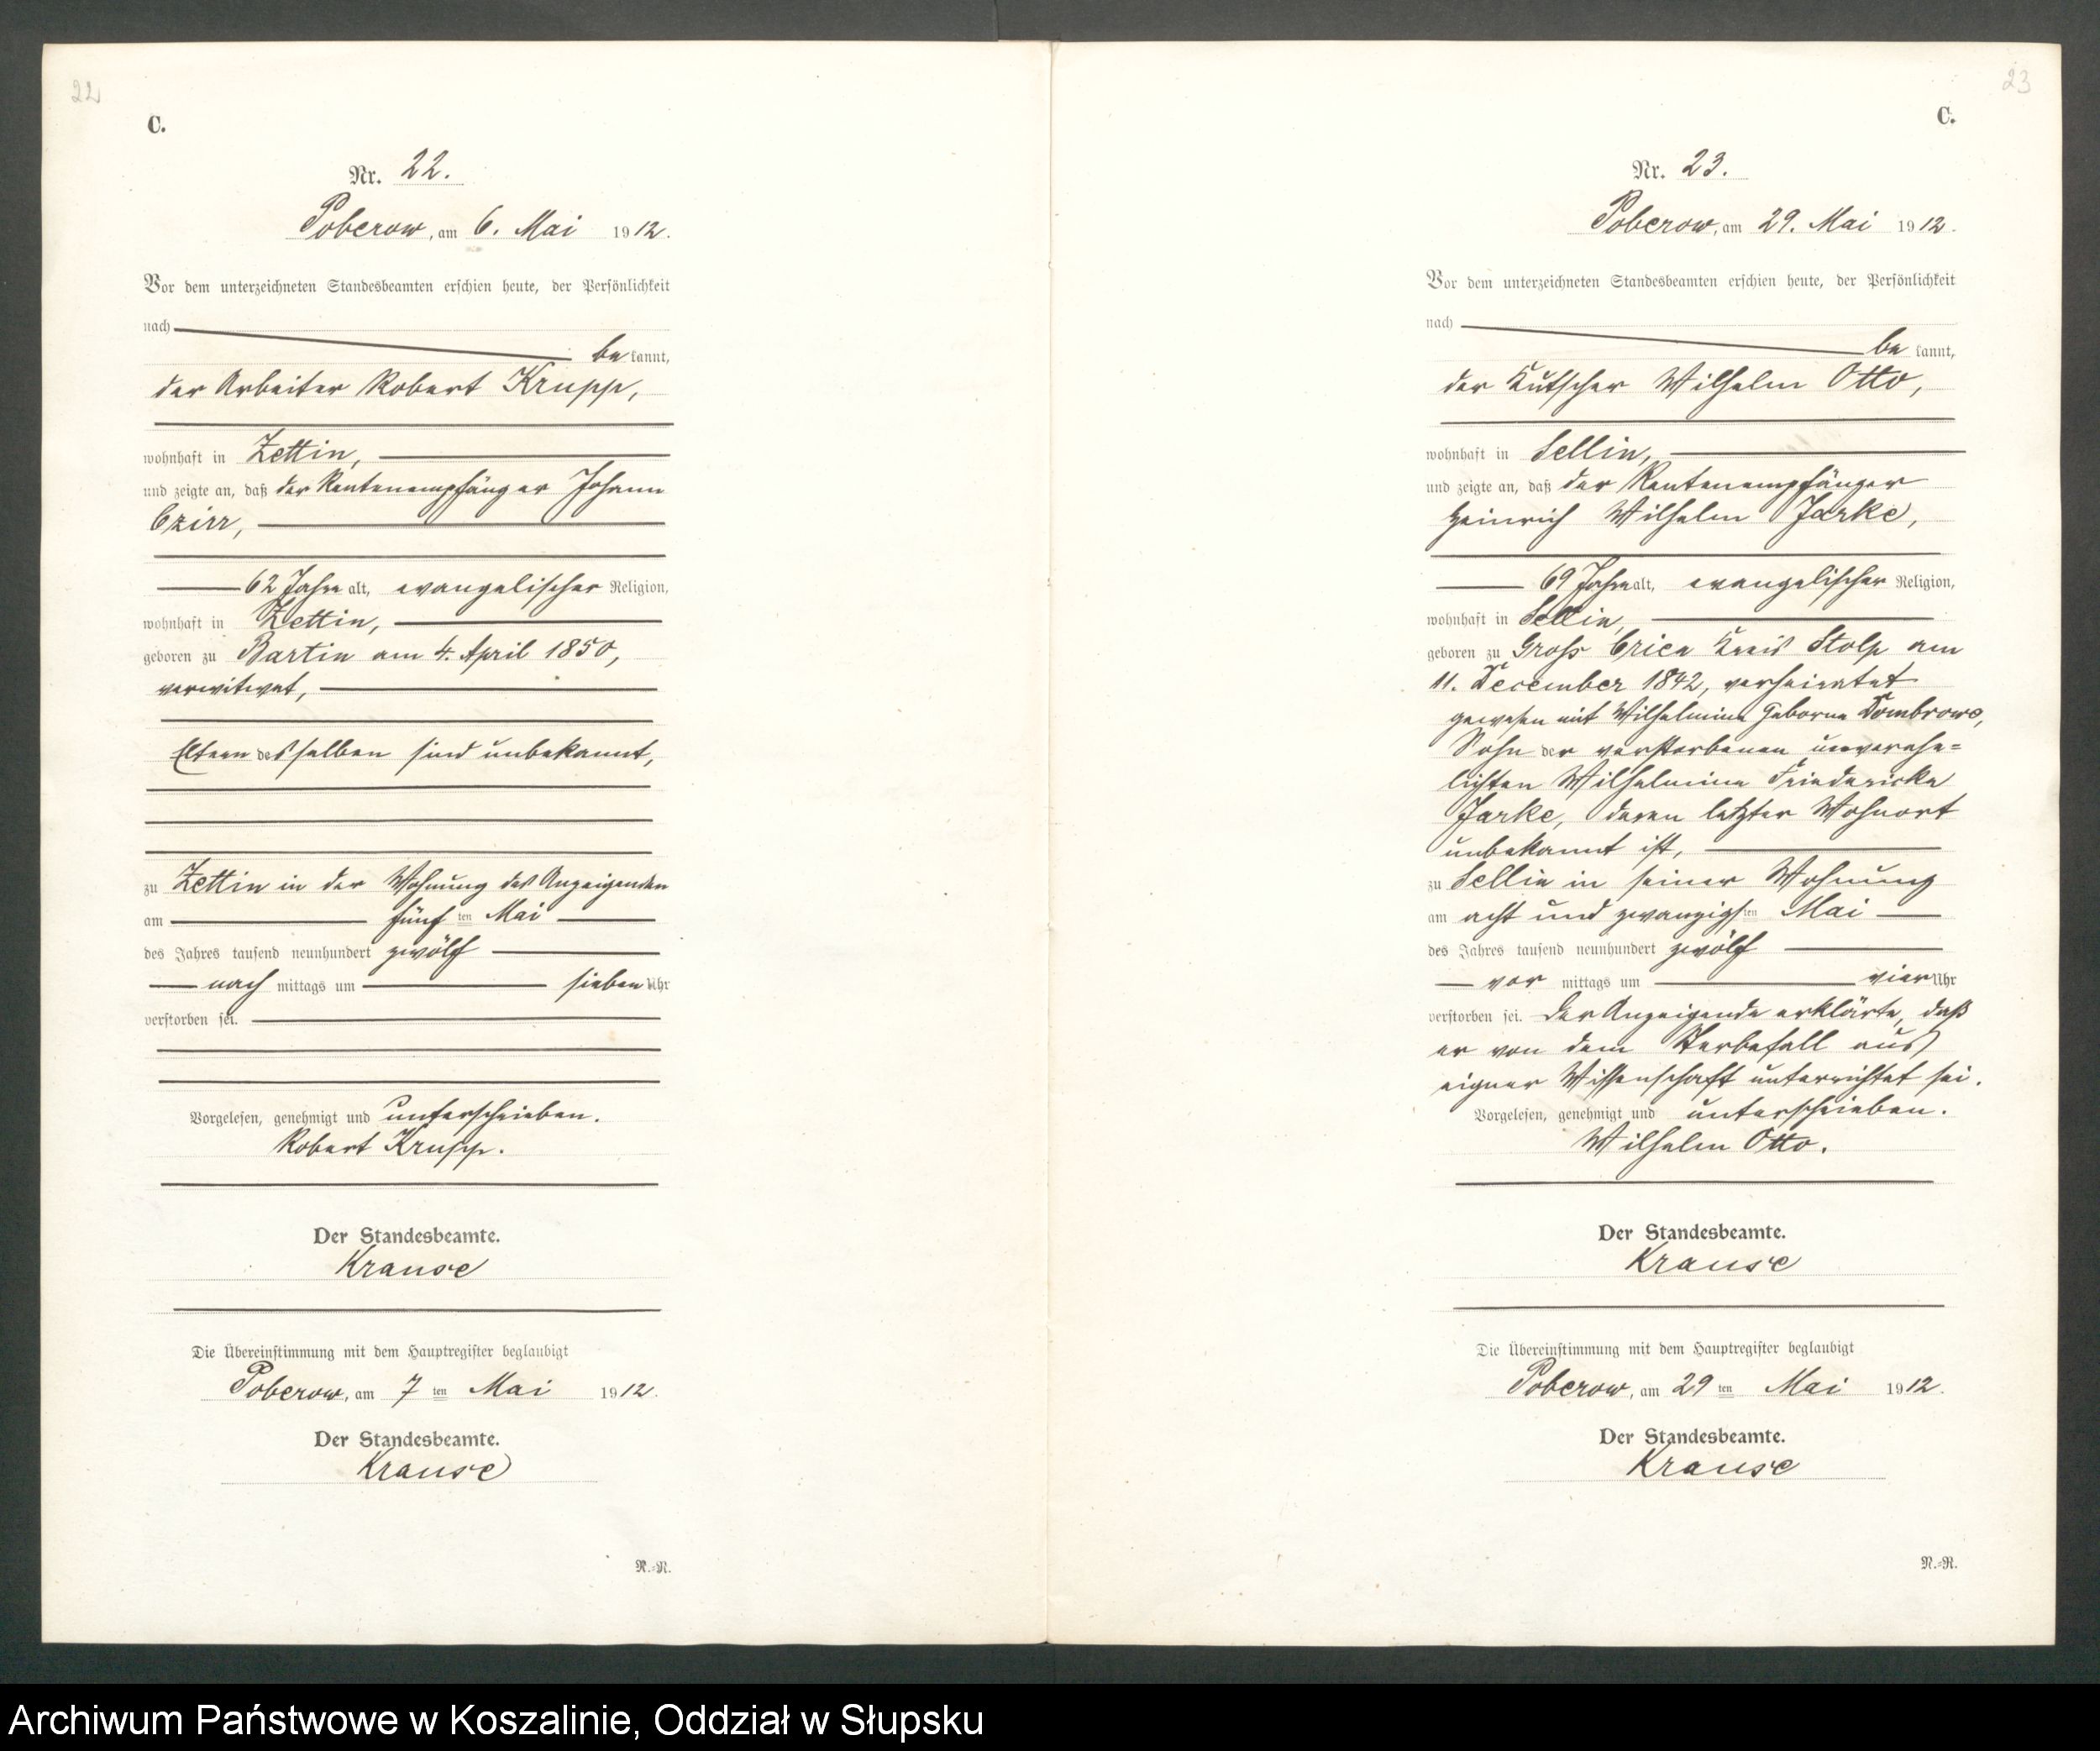 22
C.
Nr. 22.
Poberow, am 6. Mai 1912.
Vor dem unterzeichneten Standesbeamten erschien heute, der Persönlichkeit
nach
be kannt,
der Arbeiter Robert Krupp,
wohnhaft in Zettin,
und zeigte an, daß der Rentenempfänger Johann
Czirr,
62 Jahre alt, evangelischer Religion,
wohnhaft in Zettin,
geboren zu Bartin am 4. April 1850,
verwitwet,
Eltern desselben sind unbekannt,
zu Zettin in der Wohnung des Anzeigenden
am fünften Mai
des Jahres tausend neunhundert zwölf
nach mittags um sieben Uhr
verstorben sei.
Vorgelesen, genehmigt und unterschrieben.
Robert Krupp.
Der Standesbeamte.
Krause
Die Übereinstimmung mit dem Hauptregister beglaubigt
Poberow, am 7ten Mai 1912.
Der Standesbeamte.
Krause
R.-N.
23
C.
Nr. 23.
Poberow, am 29. Mai 1912.
Vor dem unterzeichneten Standesbeamten erschien heute, der Persönlichkeit
nach
be kannt,
der Kutscher Wilhelm Otto,
wohnhaft in Sellin,
und zeigte an, daß der Rentenempfänger
Heinrich Wilhelm Jarke,
69 Jahre alt, evangelischer Religion,
wohnhaft in Sellin,
geboren zu Gross Crien Kreis Stolp am
11. December 1842, verheiratet
gewesen mit Wilhelmine geborne Dombrowe,
Sohn der verstorbenen unverehe=
lichten Wilhelmine Friedericke
Jarke, deren letzter Wohnort
unbekannt ist,
zu Sellin in seiner Wohnung
am acht und zwanzigsten Mai
des Jahres tausend neunhundert zwölf
vor mittags um vier Uhr
verstorben sei. Der Anzeigende erklärte, daß
er von dem Sterbefall aus
eigner Wissenschaft unterrichtet sei.
Vorgelesen, genehmigt und unterschrieben.
Wilhelm Otto.
Der Standesbeamte.
Krause
Die Übereinstimmung mit dem Hauptregister beglaubigt
Poberow, am 29ten Mai 1912.
Der Standesbeamte.
Krause
N.-R.
Archiwum Państwowe w Koszalinie, Oddział w Słupsku